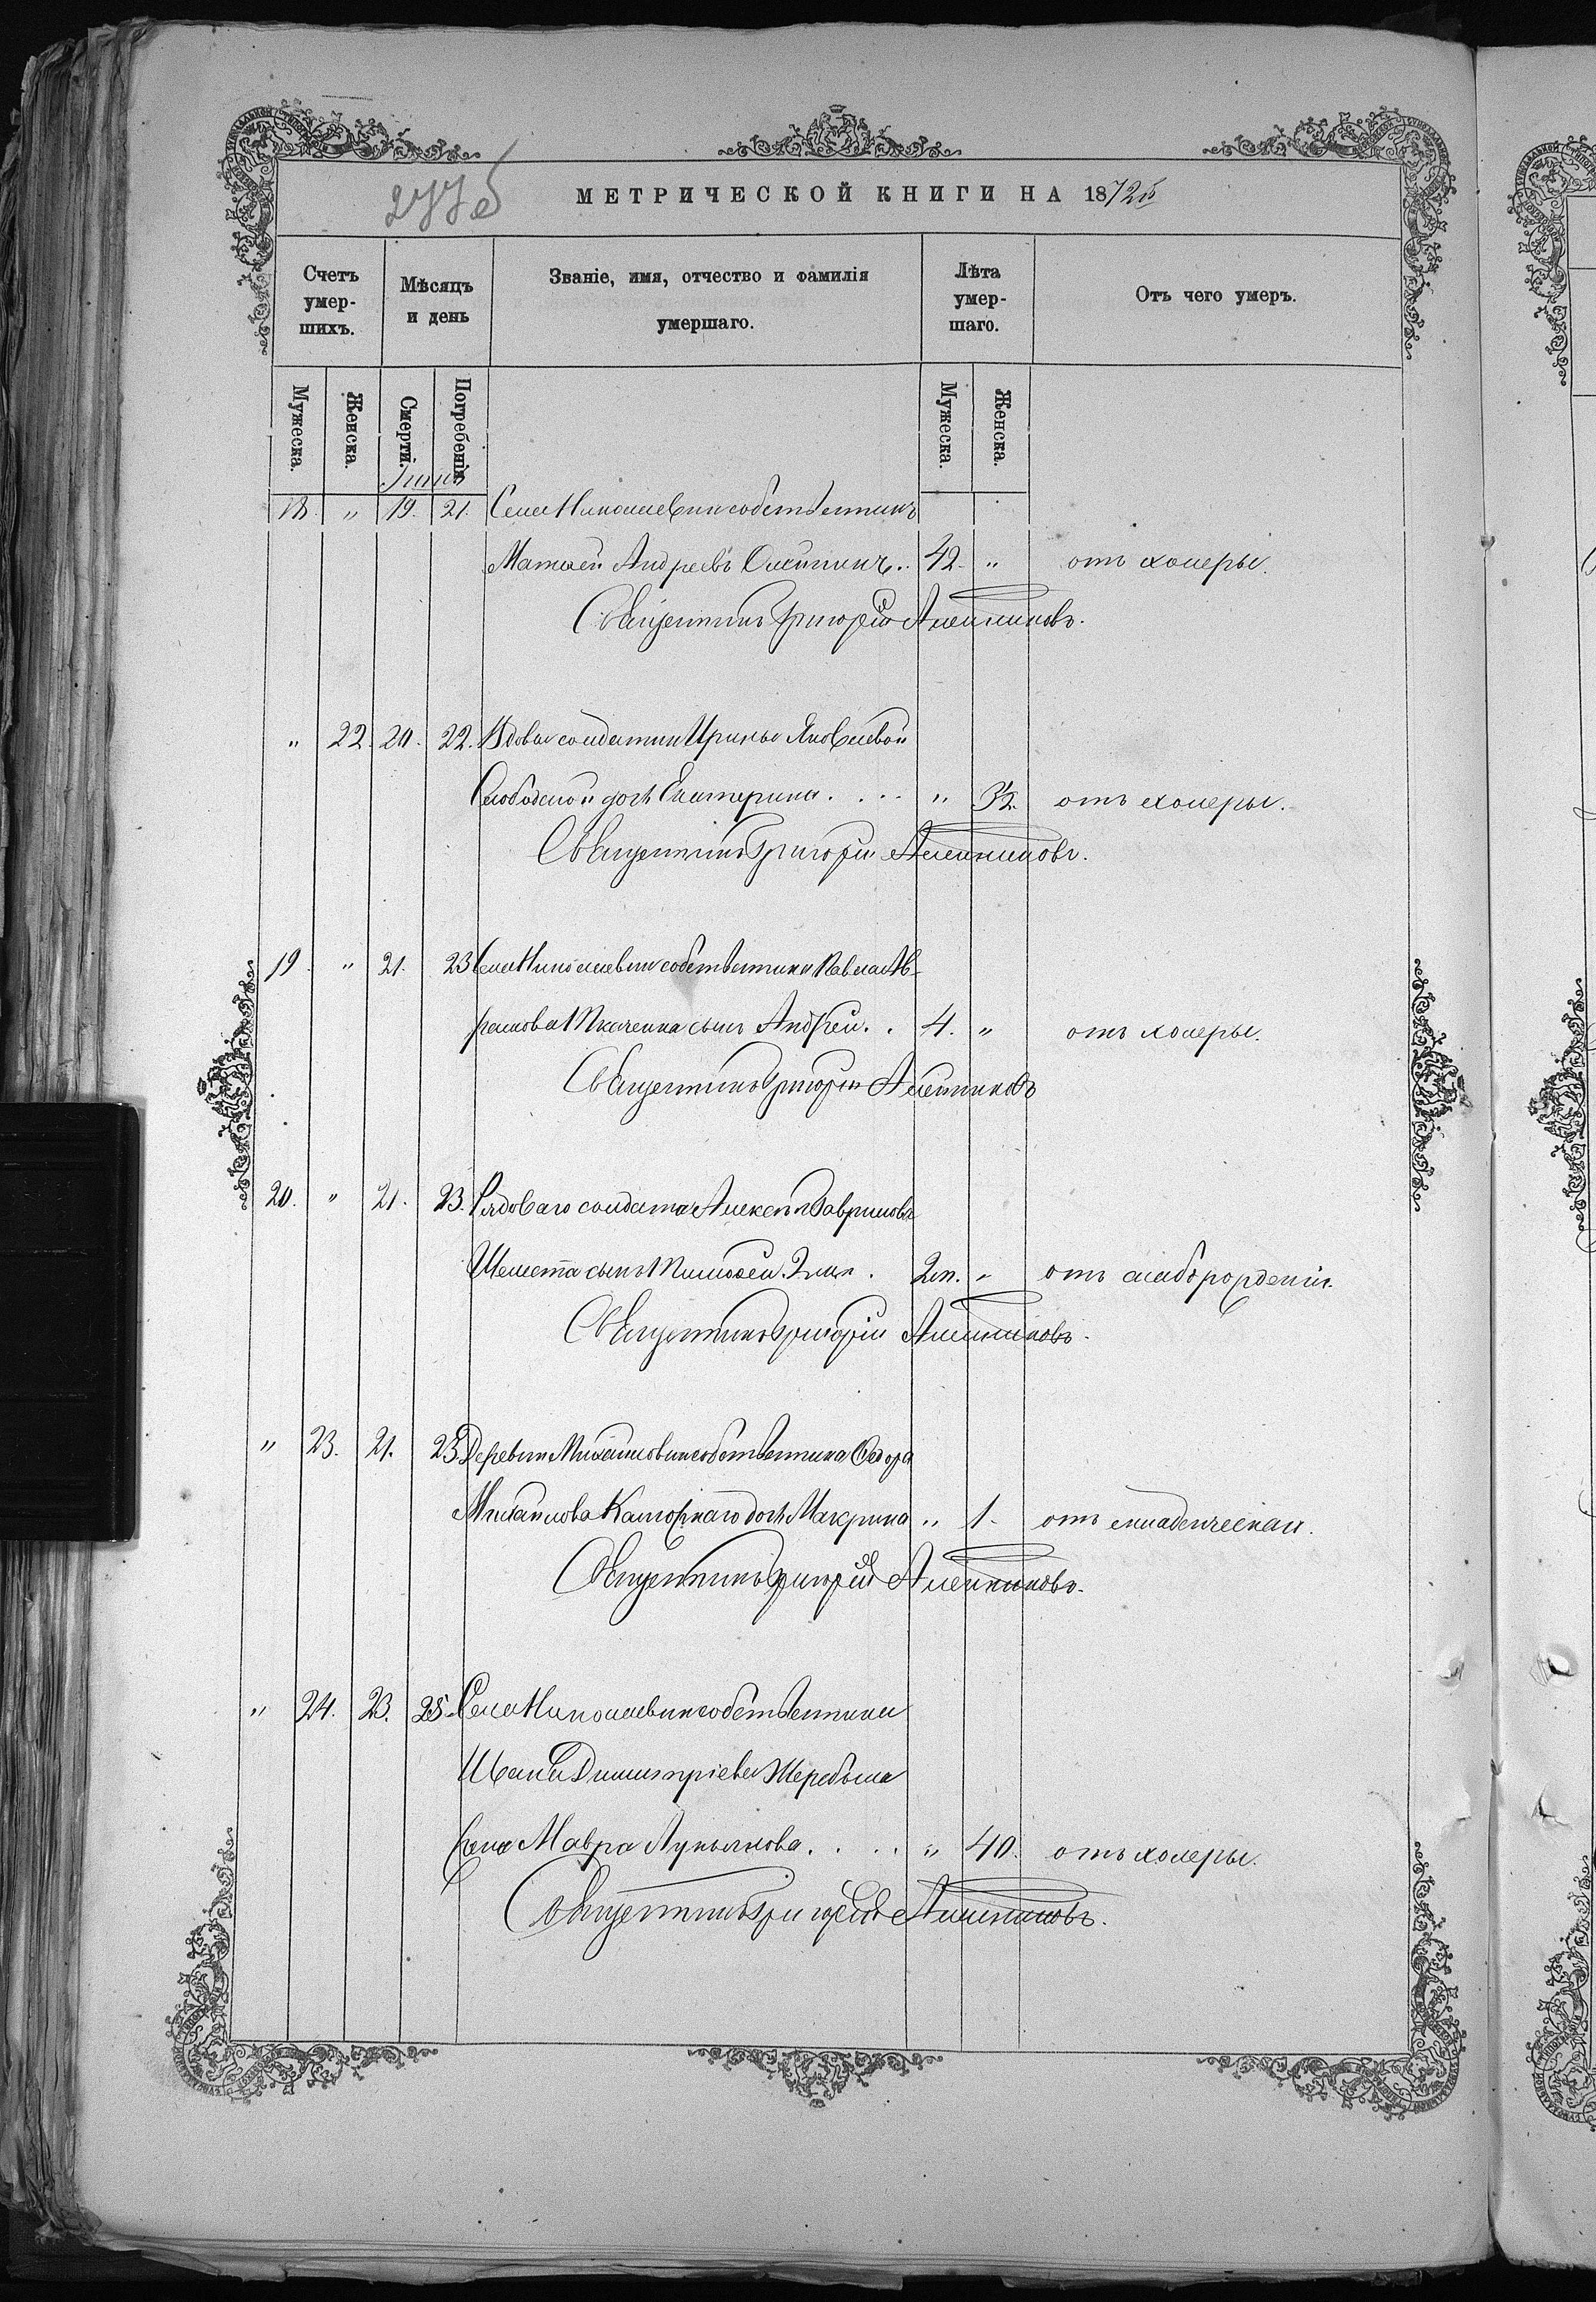 277б
МЕТРИЧЕСКОЙ КНИГИ НА 1872й
Счетъ умер-шихъ. Мѣсяцъ и день Званіе, имя, отчество и фамилія умершаго. Лѣта умер-шаго. Отъ чего умеръ.
Мужеска. Женска. Смерти. Погребенія. Мужеска. Женска.
Іюнь
18. " 19. 21. Села Николаевки собственникъ
Матвей Андреевъ Олейникъ.. 42. " отъ холеры.
Священникъ Григорій Алейниковъ.
" 22. 20. 22. Вдовы солдатки Ирины Яковлевой
Слободской дочь Екатерина.... " 3½. отъ холеры.
Священникъ Григорій Алейниковъ.
19. " 21. 23 Села Николаевки собственника Павла Ав-
рамова Ткаченка сынъ Андрей.. 4. " отъ холеры.
Священникъ Григорій Алейниковъ
20. " 21. 23. Рядоваго солдата Алексея Гаврилова
Шемета сынъ Тимофей. . 2м. " отъ слаборожденія.
Священникъ Григорій Алейниковъ.
" 23. 21. 23 Деревни Михайловки собственника Федора
Михайлова дочь Макрина " 1. отъ младенческой.
Священникъ Григорій Алейниковъ.
" 24. 23. 25. Села Николаевки собственника
Ивана Димитріева Жеребыла
жена Мавра Лукьянова.... " 40. отъ холеры.
Священникъ Григорій Алейниковъ.